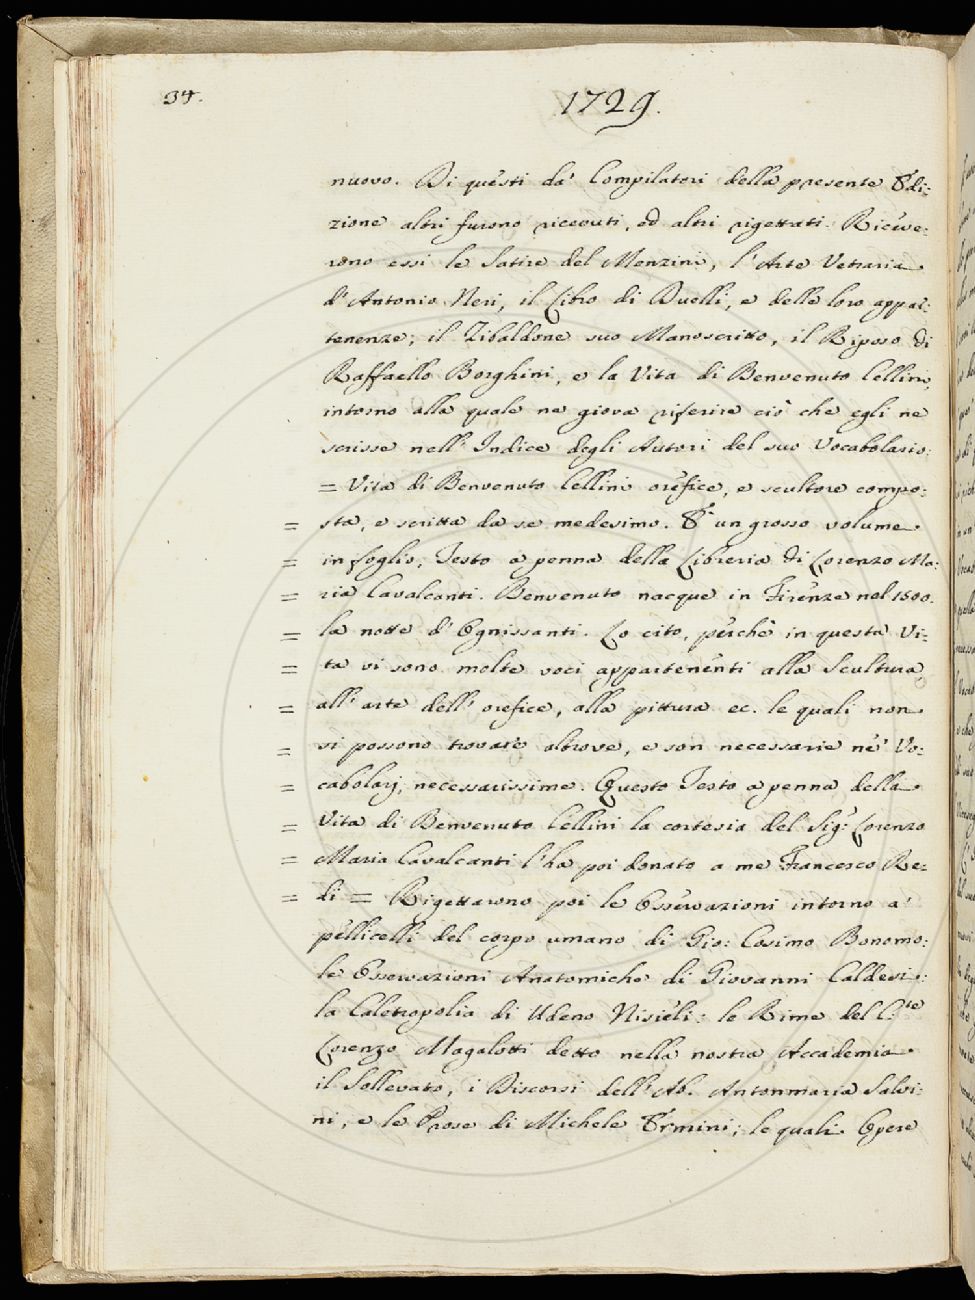 34.
1729.
nuovo. Di questi da' Compilatori della presente Edi:
zione altri furono ricevuti, ed altri rigettati. Riceve:
rono essi le Satire del Menzini, l'Arte Vetraria
d'Antonio Neri, il Libro di Duelli, e delle loro appar:
tenenze; il Zibaldone suo Manoscritto, il Riposo di
Raffaello Borghini, e la Vita di Benvenuto Cellini,
intorno alla quale ne giova riferire ciò che egli ne
scrisse nell'Indice degli Autori del suo Vocabolario:
= Vita di Benvenuto Cellini orefice, e scultore compo:
= sta, e scritta da se medesimo. E' un grosso volume
= in foglio, Testo a penna della Libreria di Lorenzo Ma:
= ria Cavalcanti. Benvenuto nacque in Firenze nel 1500.
= la notte d'Ognissanti. Lo cito, perchè in questa Vi:
= ta vi sono molte voci appartenenti alla Scultura,
= all'arte dell'orefice, alla pittura ec. le quali non
= si possono trovare altrove, e son necessarie ne' Vo:
= cabolarj, necessarissime. Questo Testo a penna della
= Vita di Benvenuto Cellini la cortesia del Sig: Lorenzo
= Maria Cavalcanti l'ha poi donato a me Francesco Re:
= di = Rigettarono poi le Osservazioni intorno a'
pellicelli del corpo umano di Gio: Cosimo Bonomo:
le Osservazioni Anatomiche di Giovanni Caldesi:
la Caletropolia di Udeno Nisieli: le Rime del C.te
Lorenzo Magalotti detto nella nostra Accademia
il Sollevato, i Discorsi dell'Ab. Antonmaria Salvi:
ni, e le Prose di Michele Ermini; le quali Opere